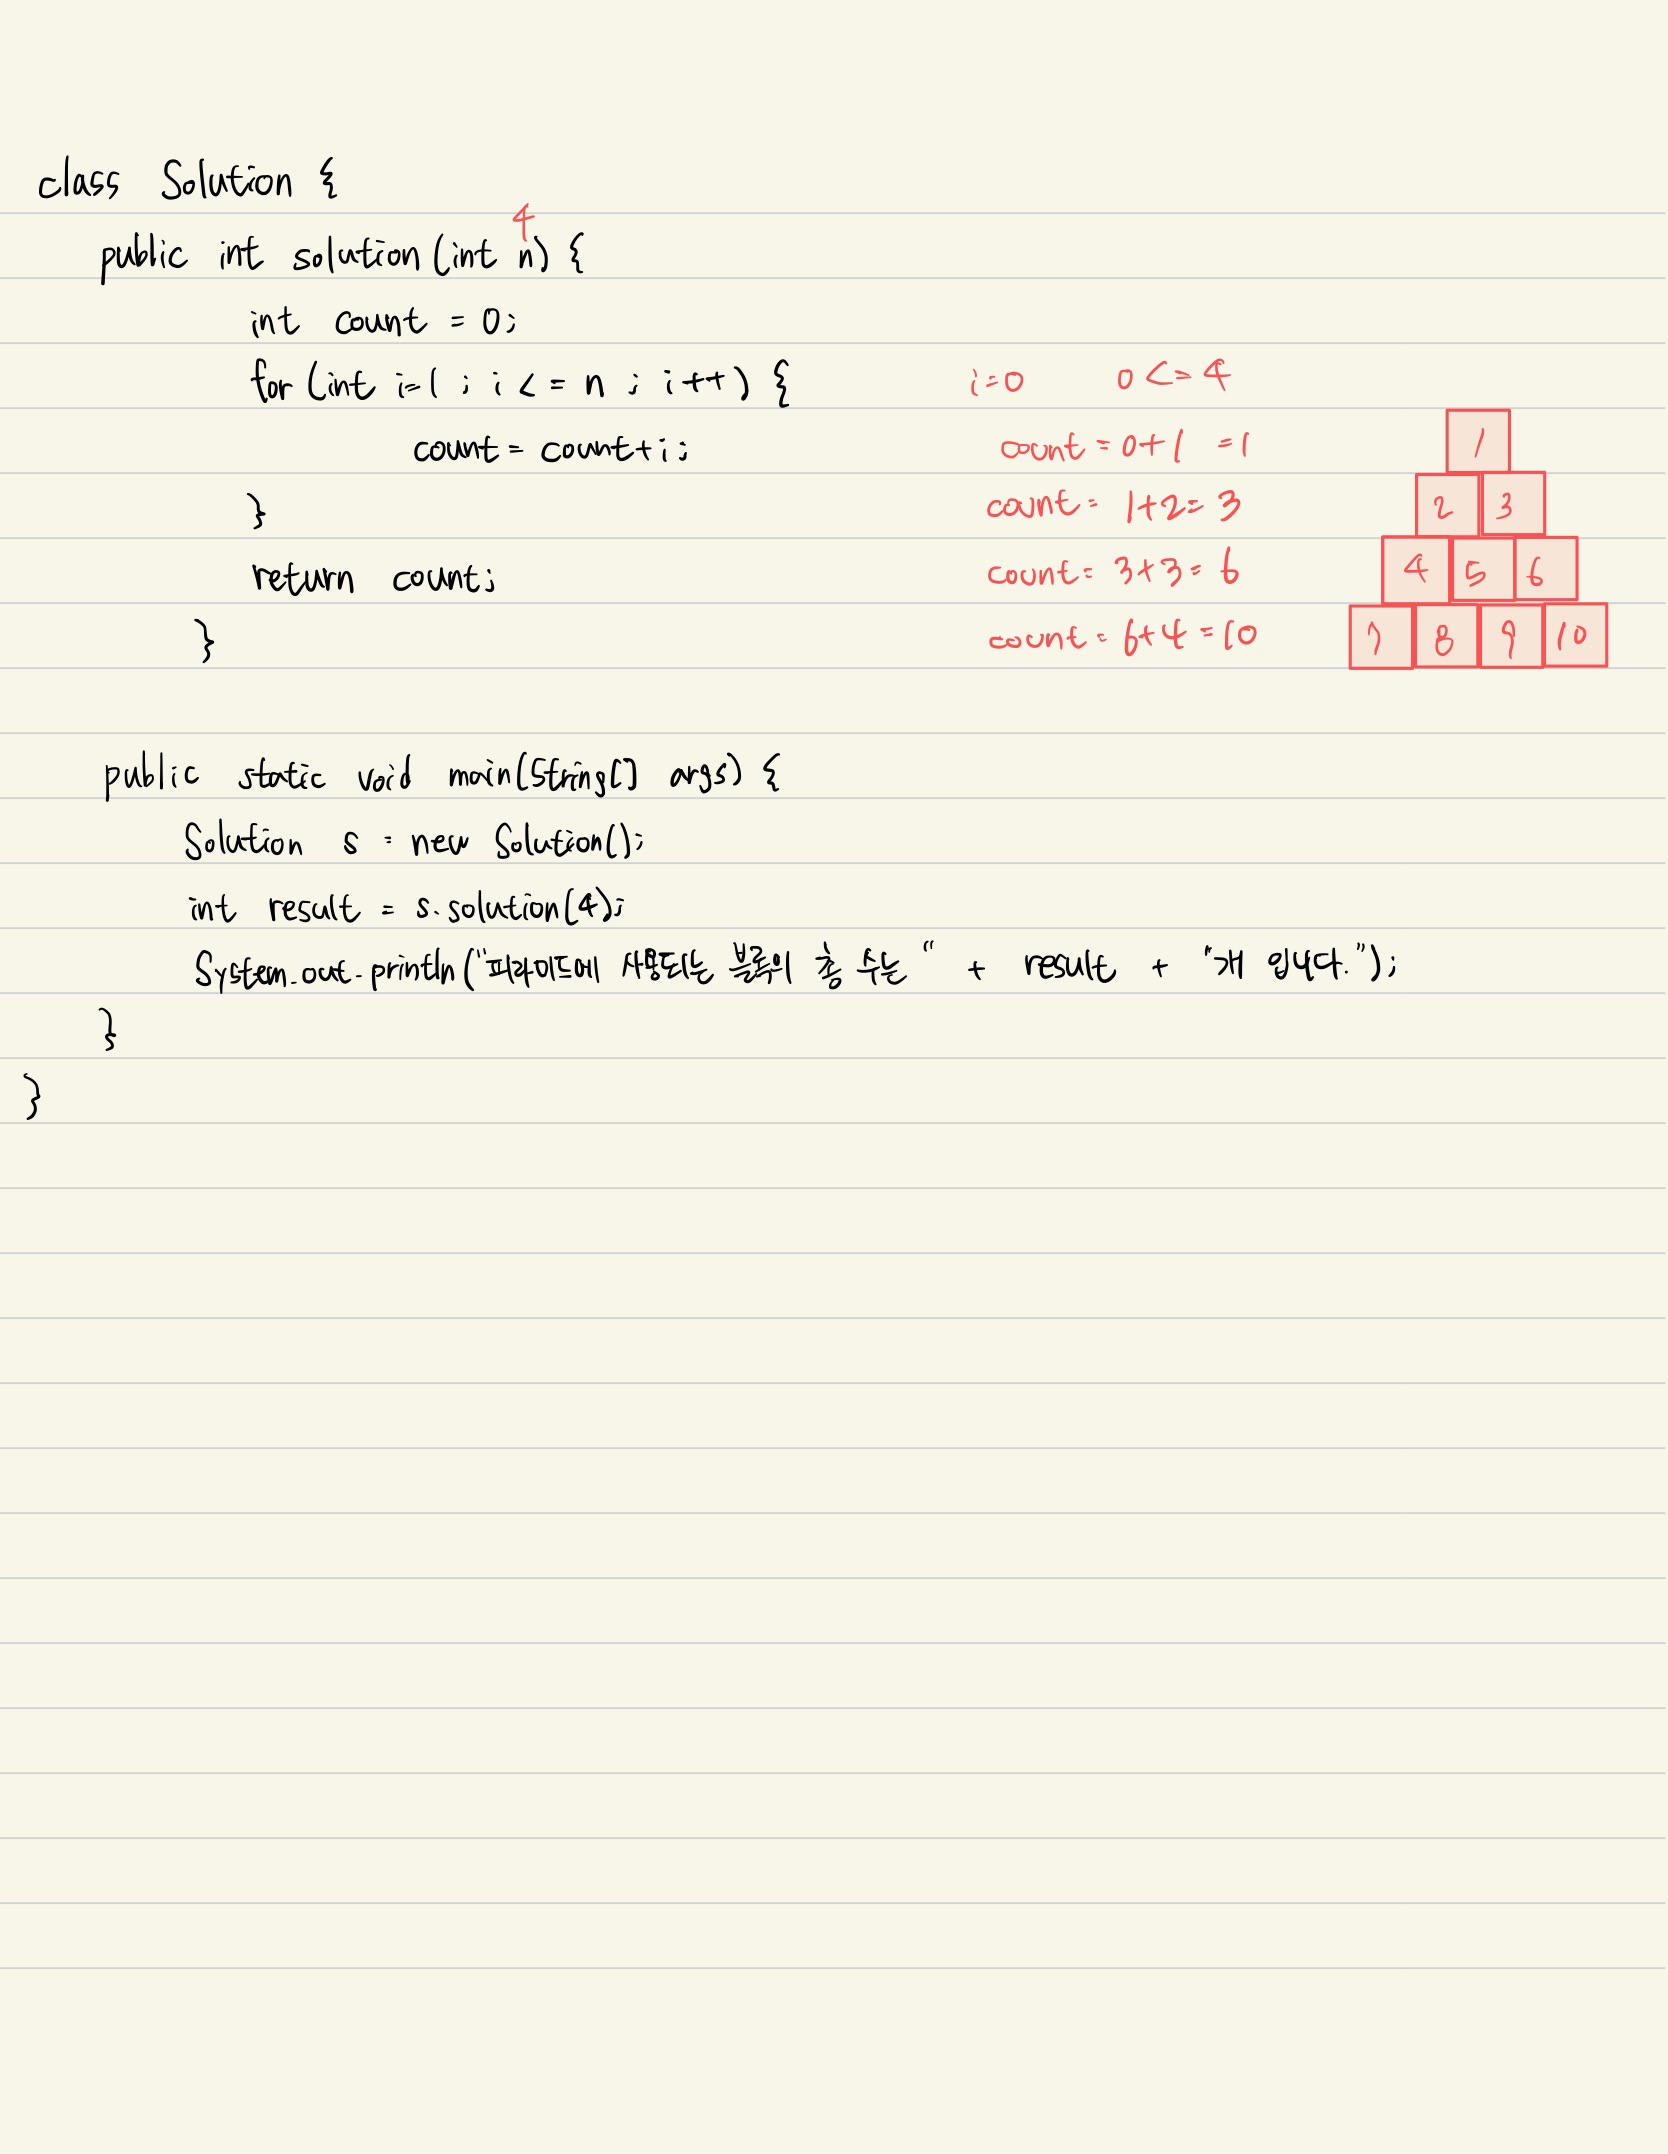 class Solution {
4
public int solution (int n) {
int count = 0;
for (int i=1 ; i <= n ; i++) {
i=0 0 <= 4
count = count+i;
count = 0+1 =1
1
}
count = 1+2= 3
2 3
return count;
count= 3+3= 6
4 5 6
}
count = 6+4 =10
7 8 9 10
public static void main(String[] args) {
Solution s = new Solution();
int result = s.solution(4);
System.out.println("피라미드에 사용되는 블록의 총 수는 " + result + "개 입니다.");
}
}